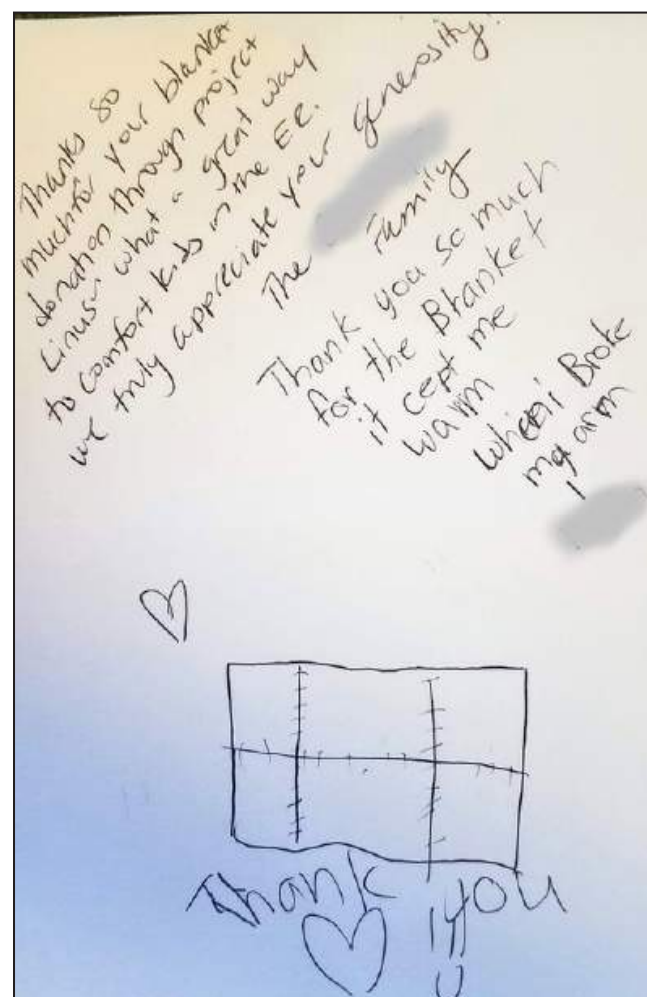 Thanks so
much for your blanket
donation through project
Linus! what a great way
to comfort kids in the ER.
we truly appreciate your generosity!
The Family
Thank you so much
for the Blanket
it cept me
warm
when i Broke
my arm
Thank you